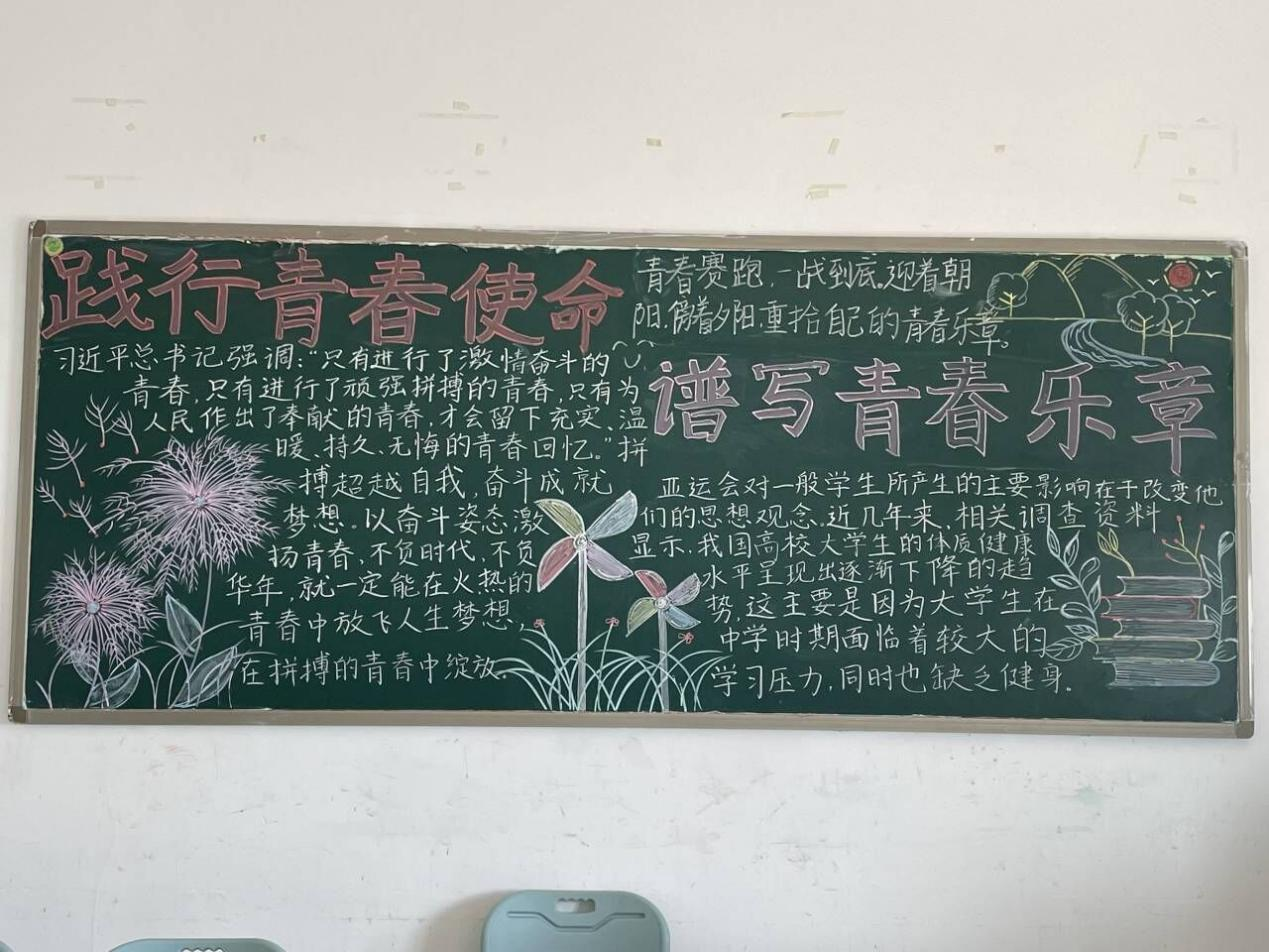 践行青春使命
习近平总书记强调:“只有进行了激情奋斗的
青春,只有进行了顽强拼搏的青春,只有为
人民作出了奉献的青春,才会留下充实、温
暖、持久、无悔的青春回忆。”拼
搏超越自我,奋斗成就
梦想。以奋斗姿态激
扬青春,不负时代,不负
华年,就一定能在火热的
青春中放飞人生梦想,
在拼搏的青春中绽放。
青春赛跑,一战到底。迎着朝
阳,傍着夕阳,重拾自己的青春乐章。
谱写青春乐章
亚运会对一般学生所产生的主要影响在于改变他
们的思想观念。近几年来,相关调查资料
显示,我国高校大学生的体质健康
水平呈现出逐渐下降的趋
势,这主要是因为大学生在
中学时期面临着较大的
学习压力,同时也缺乏健身。